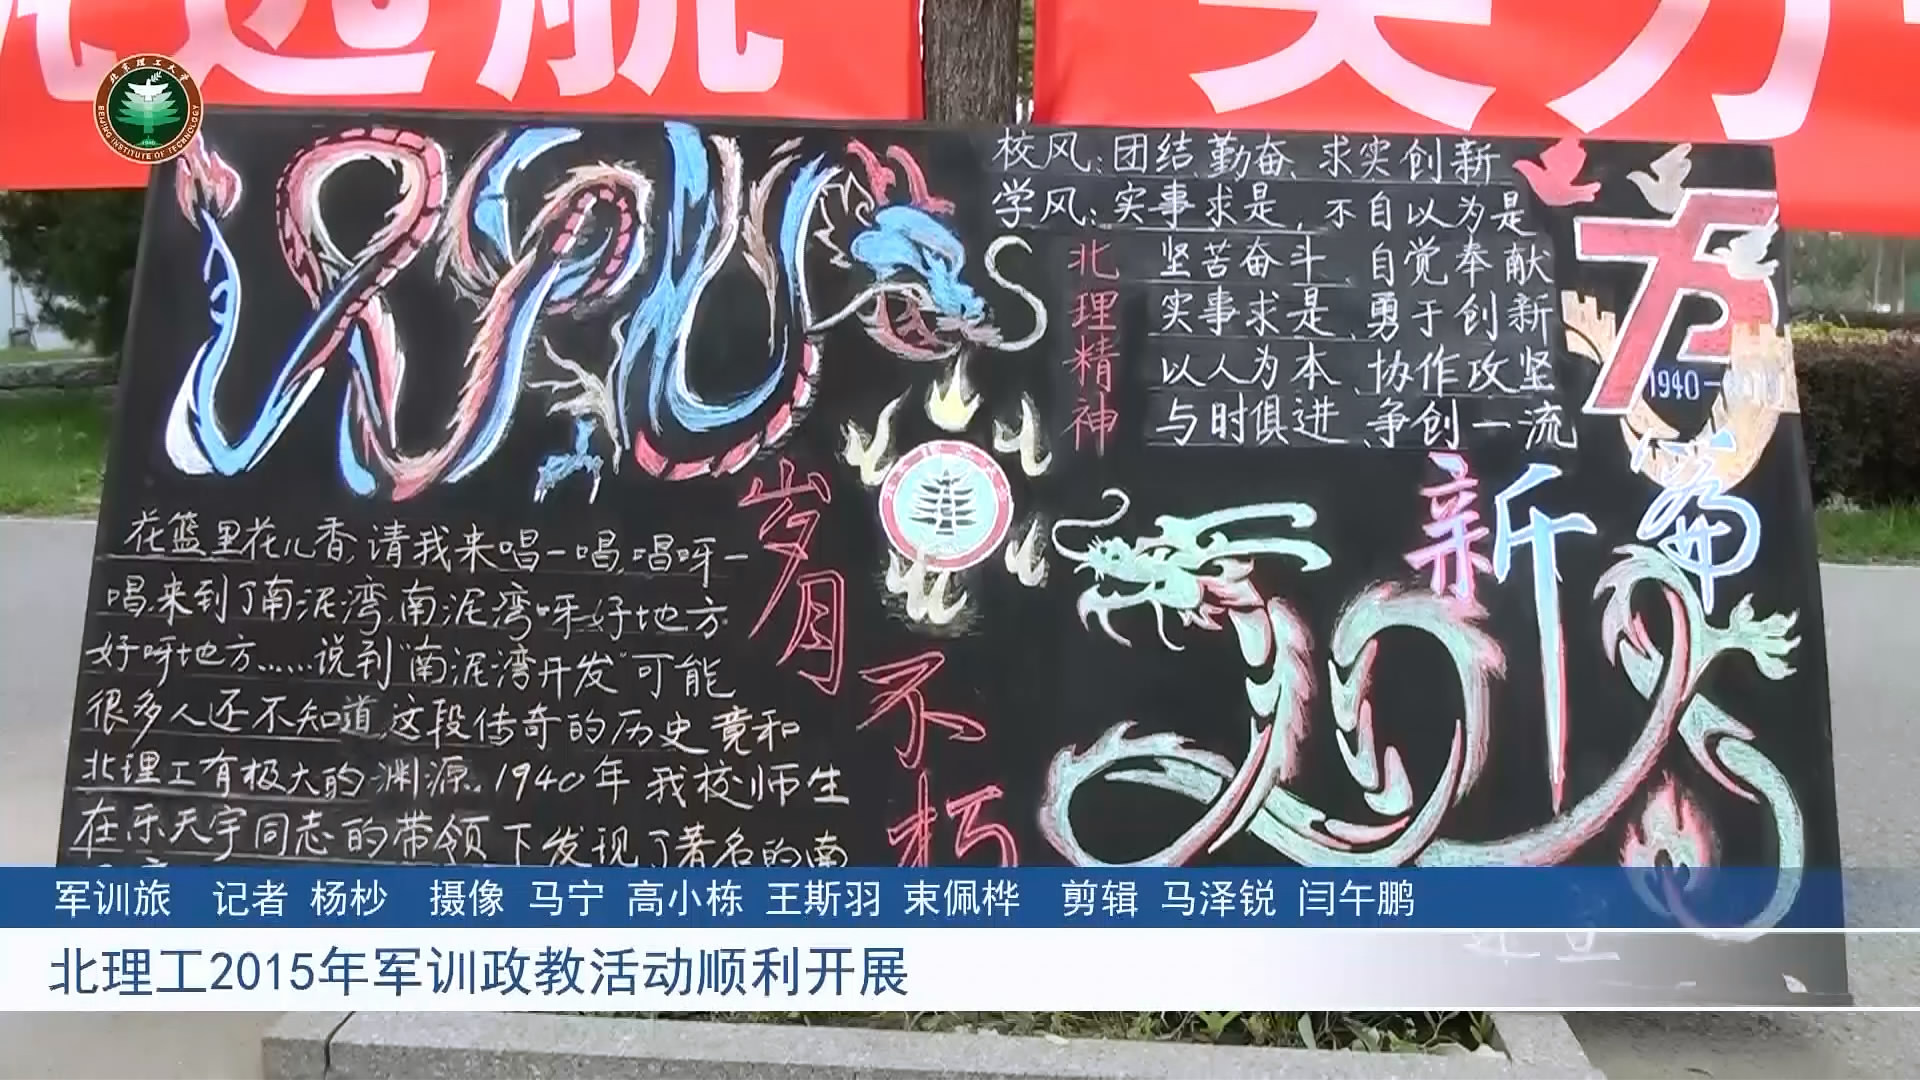 远航
北京理工大学
BEIJING INSTITUTE OF TECHNOLOGY
1940
校风:团结、勤奋、求实、创新
学风:实事求是,不自以为是
北理精神
坚苦奋斗、自觉奉献
实事求是、勇于创新
以人为本、协作攻坚
与时俱进、争创一流
1940-
岁月不朽
新篇
花篮里花儿香,请我来唱一唱,唱呀一
唱,来到了南泥湾,南泥湾呀好地方
好呀地方……说到"南泥湾开发"可能
很多人还不知道,这段传奇的历史竟和
北理工有极大的渊源。1940年我校师生
在乐天宇同志的带领下发现了著名的南
军训旅 记者 杨杪 摄像 马宁 高小栋 王斯羽 束佩桦 剪辑 马泽锐 闫午鹏
北理工2015年军训政教活动顺利开展